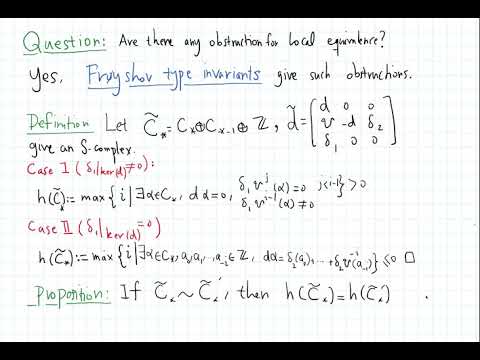 Question: Are there any obstruction for local equivalence?
Yes. Frøyshov type invariants give such obstructions.
Definition Let C̃_* = C_* ⊕ C_{*-1} ⊕ ℤ, d̃ = [ d 0 0 ; v -d δ₂ ; δ₁ 0 0 ]
give an S-complex.
Case I (δ₁|ker(d) ≠ 0):
h(C̃_*) := max { i | ∃α∈C_*, dα=0, δ₁v^j(α)=0 j<i-1, δ₁v^{i-1}(α)≠0 } > 0
Case II (δ₁|ker(d) = 0)
h(C̃_*) := max { i | ∃α∈C_*, a₀, a₁, ..., a_{-i}∈ℤ, dα = δ₂(a₀), ... + δ₂v^{-i}(a_{-i}) } ≤ 0 □
Proposition: If C̃_* ~ C̃_*', then h(C̃_*) = h(C̃_*') .